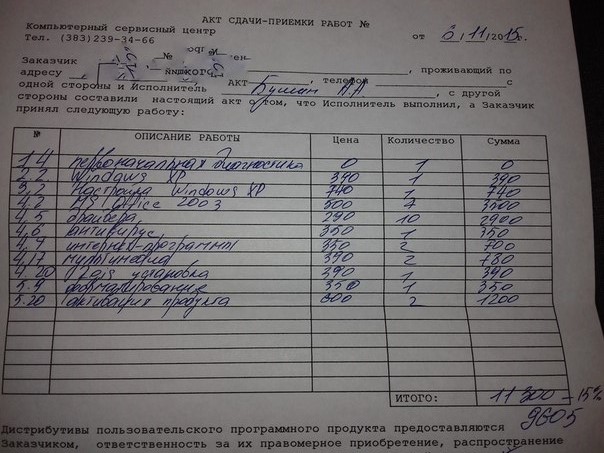 АКТ СДАЧИ-ПРИЕМКИ РАБОТ №
Компьютерный сервисный центр
Тел. (383)239-34-66
от 8.11.2015г.
Заказчик
адресу , проживающий по
АКТ , телефон с
одной стороны и Исполнитель А.А , с другой
стороны составили настоящий акт о том, что Исполнитель выполнил, а Заказчик
принял следующую работу:
№ ОПИСАНИЕ РАБОТЫ Цена Количество Сумма
1.4 первоначальная диагностика 0 1 0
2.2 Windows XP 390 1 390
3,2 Настройка Windows XP 740 1 740
4.2 MS Office 2003 500 7 3500
4.5 драйвера, 290 10 2900
4,6 антивирус, 350 1 350
4.9 интернет-программы 350 2 700
4,17 мультимедиа 390 2 780
4.20 установка 390 1 390
5.4 форматирование 350 1 350
5.20 активация продукта 600 2 1200
ИТОГО: 11 300 - 15%
9605
Дистрибутивы пользовательского программного продукта предоставляются
Заказчиком, ответственность за их правомерное приобретение, распространение